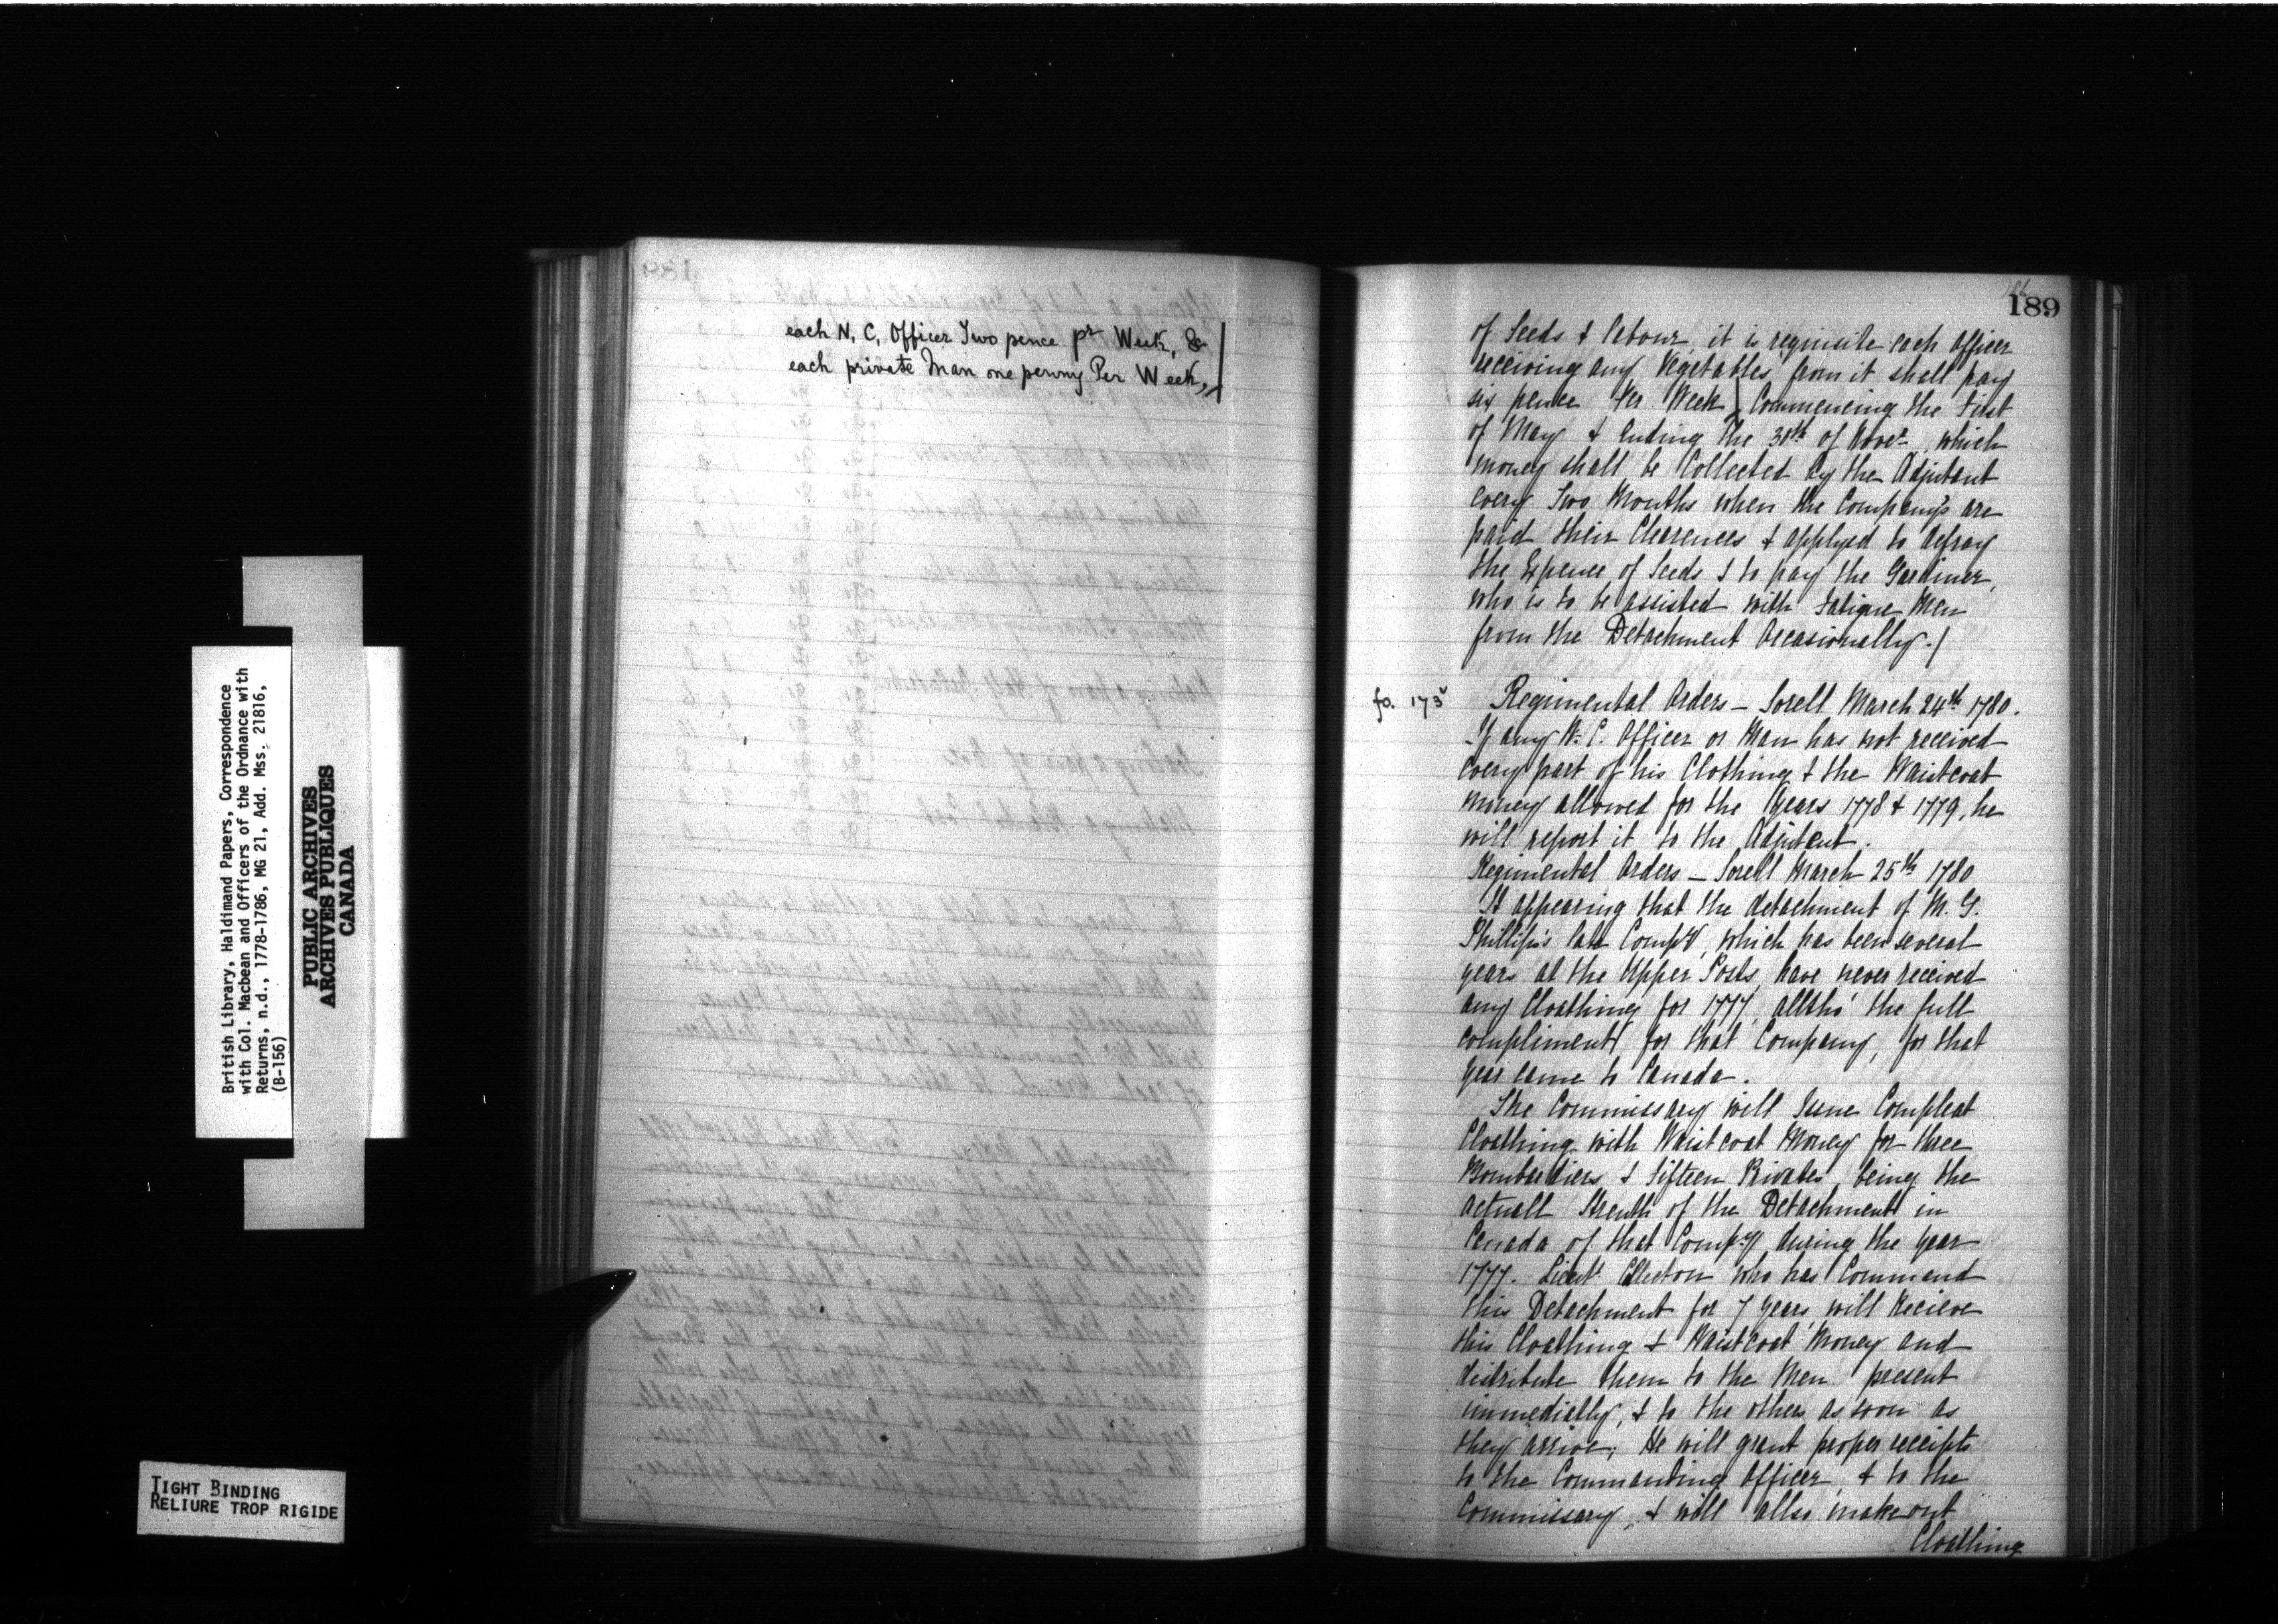 British Library, Haldimand Papers, Correspondence
with Col. Macbean and Officers of the Ordnance with
Returns, n.d., 1778-1786, MG 21, Add. Mss. 21816,
(B-156)
PUBLIC ARCHIVES
ARCHIVES PUBLIQUES
CANADA
TIGHT BINDING
RELIURE TROP RIGIDE
each N. C. Officer Two pence pr Week, &
each private Man one penny Per Week,
189
of Seeds & Labour, it is requisite each Officer
receiving any Vegetables from it shall pay
six pence Per Week Commencing the First
of May & Ending the 30th of Novr. which
money shall be Collected by the Adjutant
every Two Months when the Company's are
paid their Clearences & applyed to defray
the Expence of Seeds & to pay the Gardiner,
who is to be assisted with Fatigue Men
from the Detachment Occasionally./
fo. 173v
Regimental Orders — Sorell March 24th 1780.
If any N. C. Officer or Man has not received
every part of his Clothing & the Waistcoat
money allowed for the Years 1778 & 1779, he
will report it to the Adjutant.
Regimental Orders — Sorell March 25th 1780
It appearing that the detachment of M. G.
Phillips's late Compy, which has been several
years at the Upper Posts, have never received
any Cloathing for 1777, alltho' the full
compliment for that Company, for that
year came to Canada.
The Commissary will Issue Compleat
Cloathing with Waistcoat Money for three
Bombardiers & Fifteen Privates, being the
actuall Strenth of the Detachment in
Canada of that Compy during the year
1777. Lieut who has Command
this Detachment for 7 years will Recieve
this Cloathing & Waistcoat Money and
distribute them to the Men present
immedially, & to the others as soon as
they arrive; He will grant proper receipts
to the Commanding Officer, & to the
Commissary, & will allso make out
Cloathing